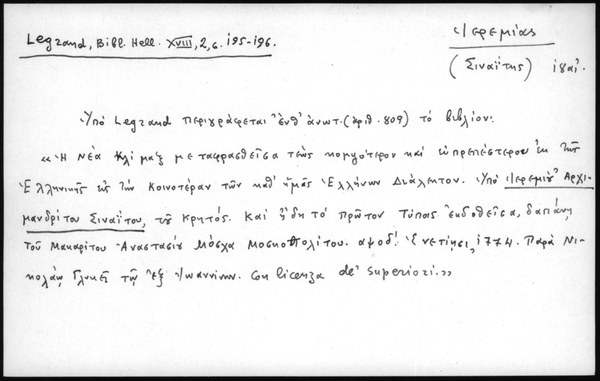 Legrand, Bibl. Hell. XVIII, 2, σ. 195-196.
Ἱερεμίας
(Σιναΐτης) ιηαʹ.
Ὑπὸ Legrand περιγράφεται ἔνθ' ἀνωτ. (ἀριθ. 809) τὸ βιβλίον:
«Ἡ Νέα Κλίμαξ μεταφρασθεῖσα τεῶς κομψότερον καὶ εὐπρεπέστερον ἐκ τῆς
Ἑλληνικῆς εἰς τὴν κοινοτέραν τῶν καθ' ἡμᾶς Ἑλλήνων Διάλεκτον. Ὑπὸ Ἱερεμίου Ἀρχι-
μανδρίτου Σιναΐτου, τοῦ Κρητός. Καὶ ἤδη τὸ πρῶτον Τύποις ἐκδοθεῖσα, δαπάνῃ
τοῦ Μακαρίτου Ἀναστασίου Μόσχα Μοσχοπολίτου. αψοδʹ. Ἐνετίῃσι, 1774. Παρὰ Νι-
κολάῳ Γλυκεῖ τῷ ἐξ Ἰωαννίνων. Con licenza de' Superiori.»